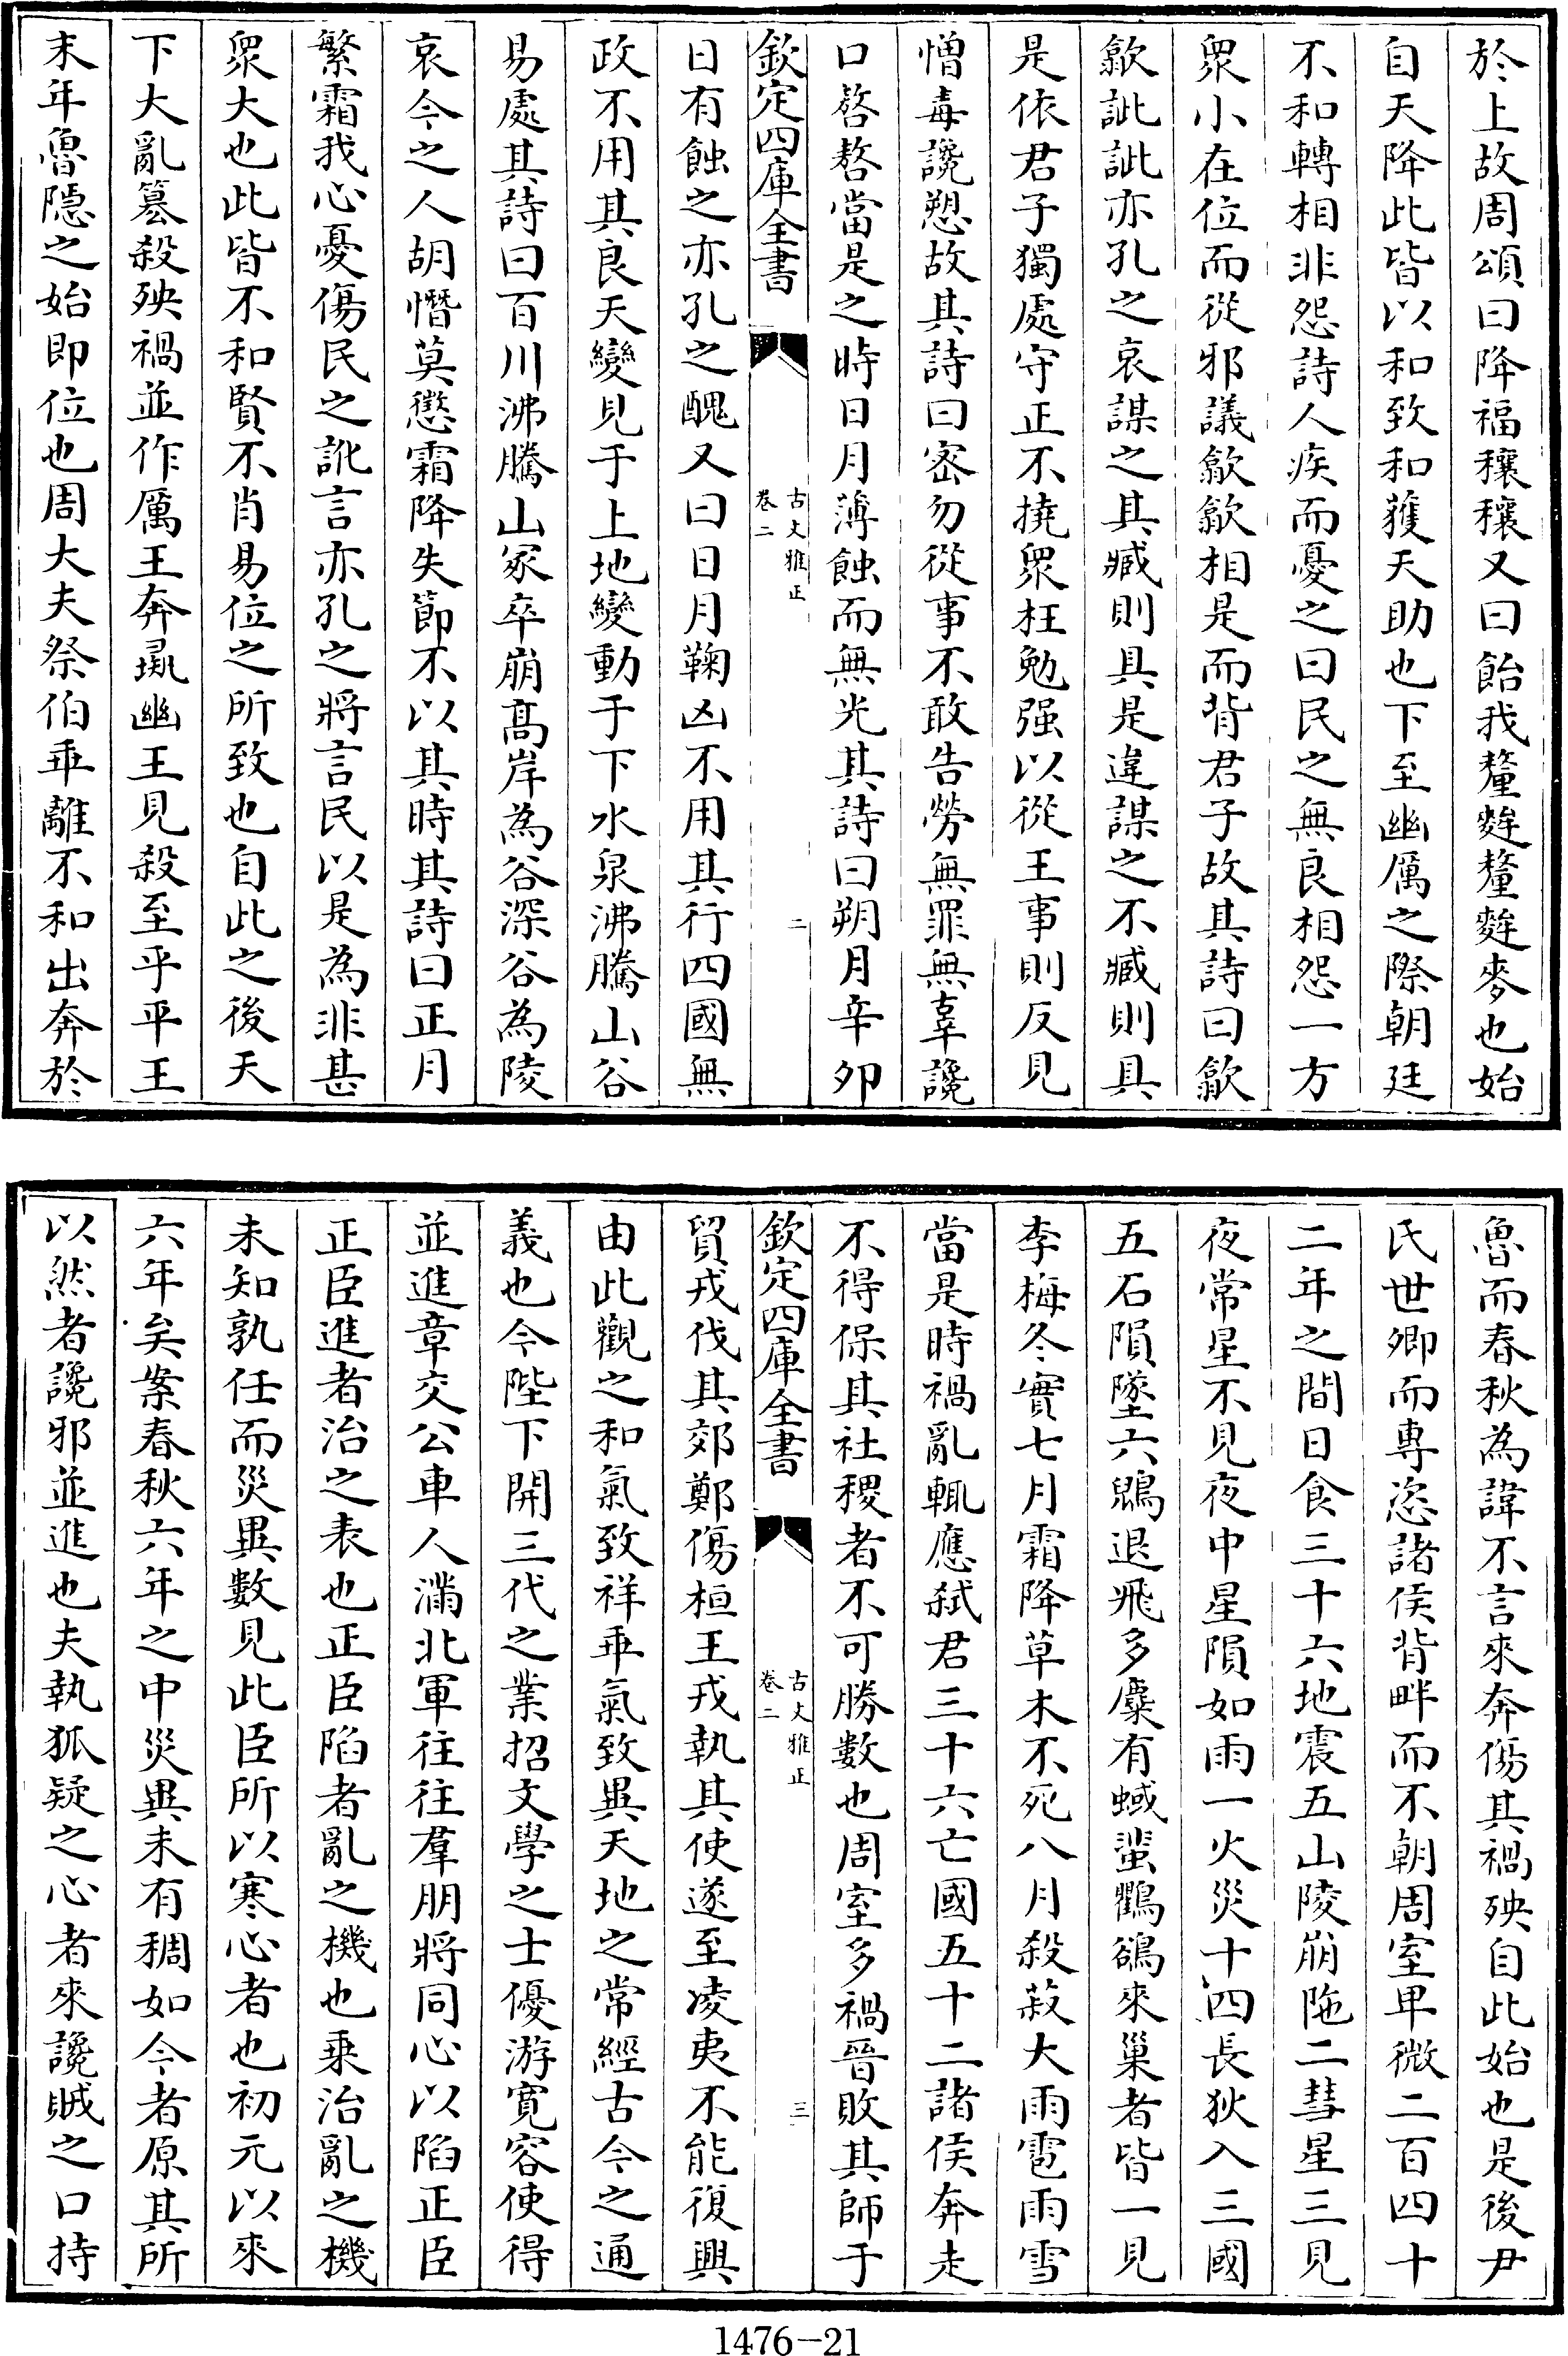 於上故周頌曰降福穰穰又曰飴我釐麰釐麰麥也始
自天降此皆以和致和獲天助也下至幽厲之際朝廷
不和轉相非怨詩人疾而憂之曰民之無良相怨一方
衆小在位而從邪議歙歙相是而背君子故其詩曰歙
歙訿訿亦孔之哀謀之其臧則具是違謀之不臧則具
是依君子獨處守正不撓衆枉勉强以從王事則反見
憎毒讒愬故其詩曰密勿從事不敢告勞無罪無辜讒
口嗸嗸當是之時日月薄蝕而無光其詩曰朔月辛卯
欽定四庫全書
古文雅正
卷二
二
日有蝕之亦孔之醜又曰日月鞠凶不用其行四國無
政不用其良天變見于上地變動于下水泉沸騰山谷
易處其詩曰百川沸騰山冢卒崩髙岸為谷深谷為陵
哀今之人胡憯莫懲霜降失節不以其時其詩曰正月
繁霜我心憂傷民之訛言亦孔之將言民以是為非甚
衆大也此皆不和賢不肖易位之所致也自此之後天
下大亂簒殺殃禍並作厲王奔彘幽王見殺至乎平王
末年魯隱之始即位也周大夫祭伯乖離不和出奔於
魯而春秋為諱不言來奔傷其禍殃自此始也是後尹
氏世卿而專恣諸侯背畔而不朝周室卑微二百四十
二年之間日食三十六地震五山陵崩阤二彗星三見
夜常星不見夜中星隕如雨一火災十四長狄入三國
五石隕墜六鶂退飛多麋有蜮蜚鸜鵒來巢者皆一見
李梅冬實七月霜降草木不死八月殺菽大雨雹雨雪
當是時禍亂輒應弑君三十六亡國五十二諸侯奔走
不得保其社稷者不可勝數也周室多禍晉敗其師于
欽定四庫全書
古文雅正
卷二
三
貿戎伐其郊鄭傷桓王戎執其使遂至凌夷不能復興
由此觀之和氣致祥乖氣致異天地之常經古今之通
義也今陛下開三代之業招文學之士優游寛容使得
並進章交公車人滿北軍往往羣朋將同心以陷正臣
正臣進者治之表也正臣陷者亂之機也乗治亂之機
未知孰任而災異數見此臣所以寒心者也初元以來
六年矣案春秋六年之中災異未有稠如今者原其所
以然者讒邪並進也夫執狐疑之心者來讒賊之口持
1476-21